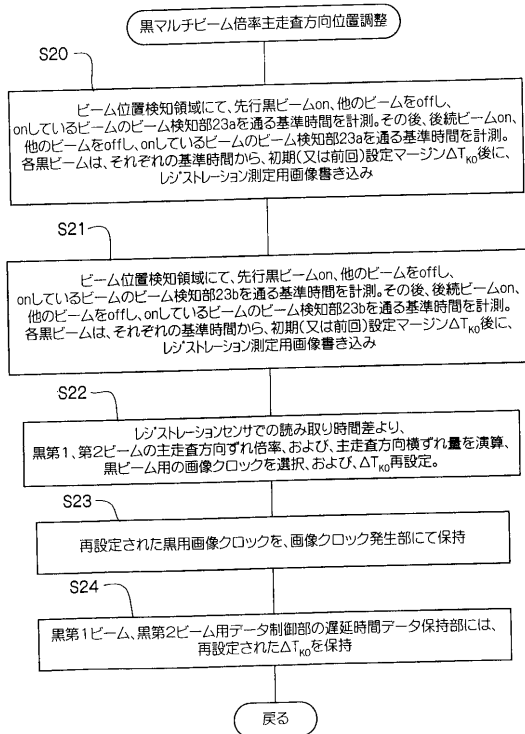 黒マルチビーム倍率主走査方向位置調整
S20
ビーム位置検知領域にて、先行黒ビームon、他のビームをoffし、
onしているビームのビーム検知部23aを通る基準時間を計測。その後、後続ビームon、
他のビームをoffし、onしているビームのビーム検知部23aを通る基準時間を計測。
各黒ビームは、それぞれの基準時間から、初期(又は前回)設定マージンΔTK0後に、
レジストレーション測定用画像書き込み
S21
ビーム位置検知領域にて、先行黒ビームon、他のビームをoffし、
onしているビームのビーム検知部23bを通る基準時間を計測。その後、後続ビームon、
他のビームをoffし、onしているビームのビーム検知部23bを通る基準時間を計測。
各黒ビームは、それぞれの基準時間から、初期(又は前回)設定マージンΔTK0後に、
レジストレーション測定用画像書き込み
S22
レジストレーションセンサでの読み取り時間差より、
黒第1、第2ビームの主走査方向ずれ倍率、および、主走査方向横ずれ量を演算、
黒ビーム用の画像クロックを選択、および、ΔTK0再設定。
S23
再設定された黒用画像クロックを、画像クロック発生部にて保持
S24
黒第1ビーム、黒第2ビーム用データ制御部の遅延時間データ保持部には、
再設定されたΔTK0を保持
戻る